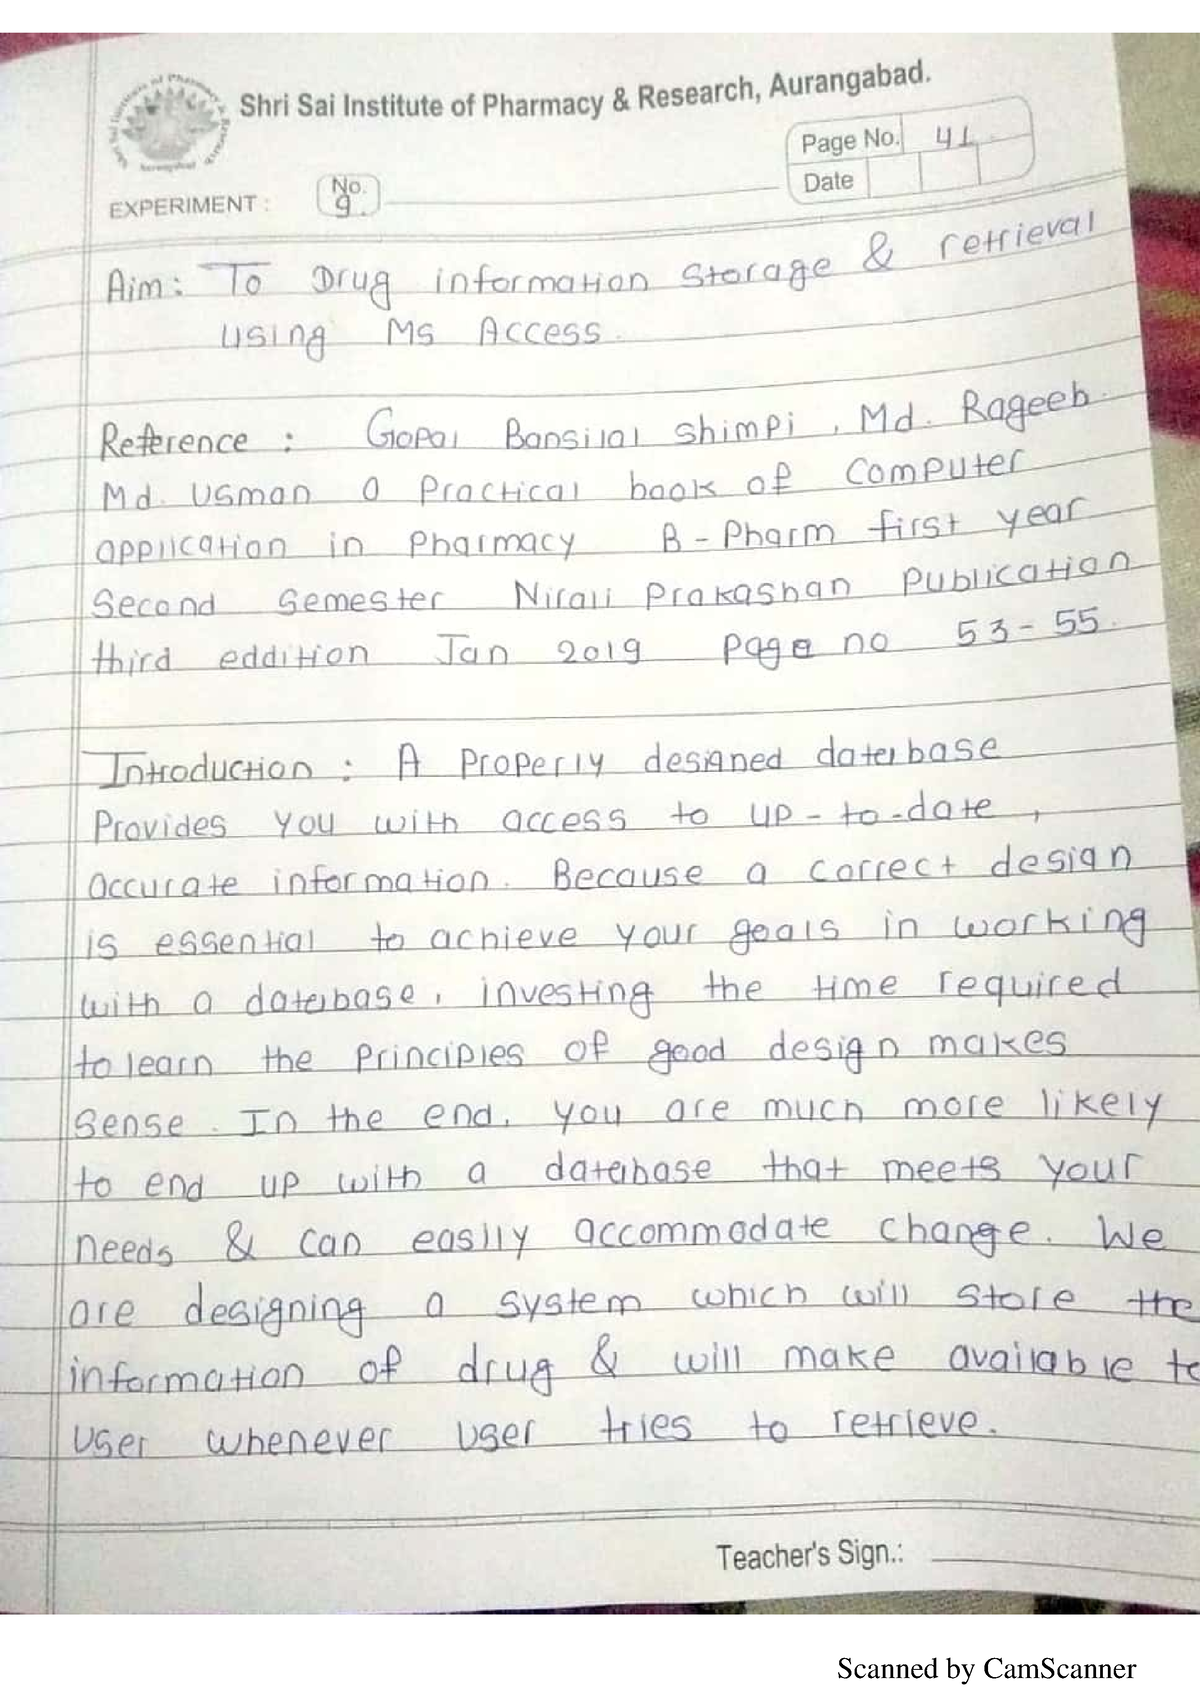 Shri Sai Institute of Pharmacy & Research, Aurangabad.
Page No. 41
Date
EXPERIMENT : No. 9.
Aim: To Drug information storage & retrieval
using Ms Access.
Reference : Gopal Bansilal Shimpi, Md. Rageeb
Md. Usman a Practical book of Computer
application in Pharmacy B-Pharm first year
Second Semester Nirali Prakashan Publication
third eddition Jan 2019 page no 53-55.
Introduction : A Properly designed database
Provides you with access to up-to-date,
accurate information. Because a correct design
is essential to achieve your goals in working
with a database, investing the time required
to learn the principles of good design makes
sense. In the end, you are much more likely
to end up with a database that meets your
needs & can easily accommodate change. We
are designing a system which will store the
information of drug & will make available to
user whenever user tries to retrieve.
Teacher's Sign.:
Scanned by CamScanner